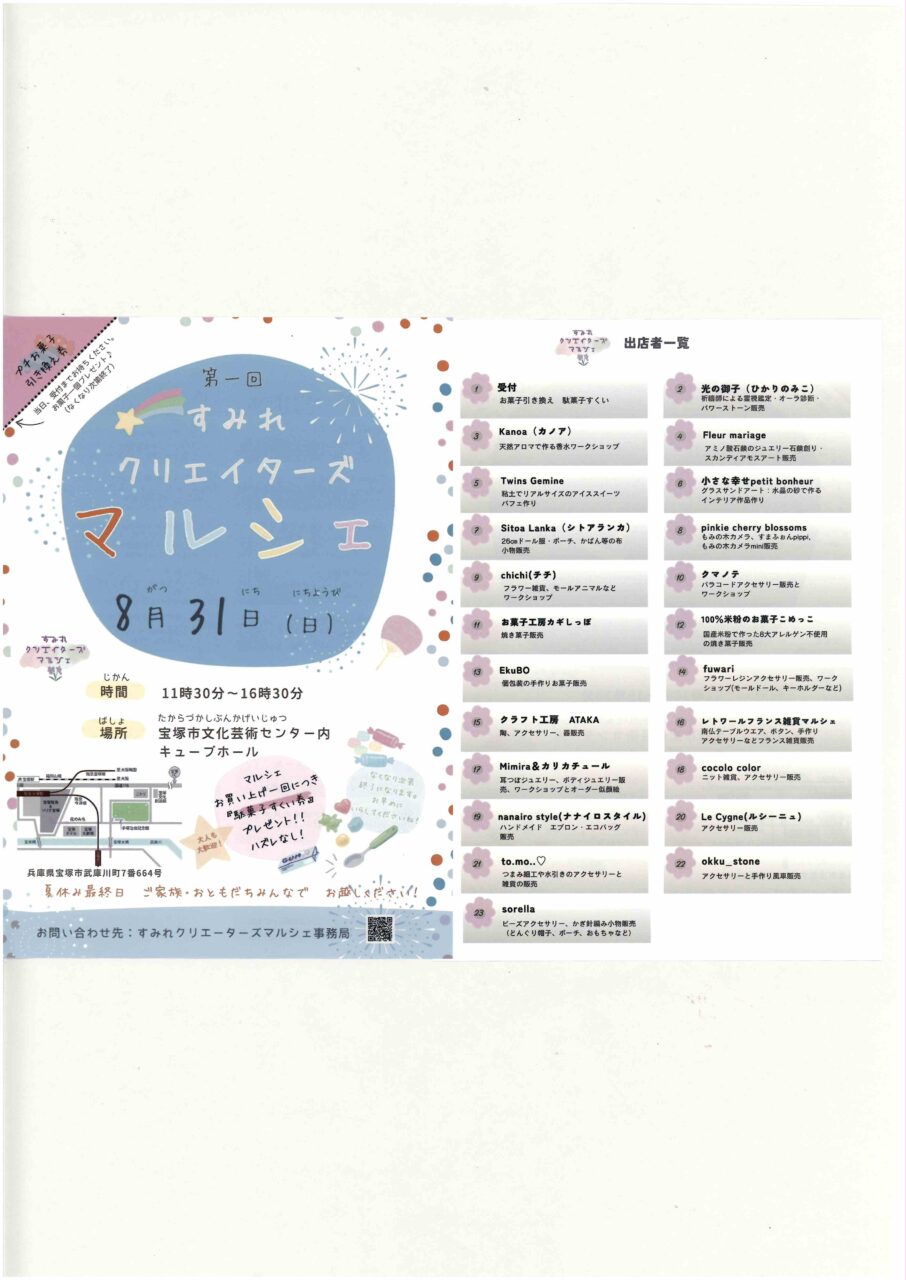 プチお菓子
引き換え券
当日、受付までお持ちください。
お菓子一個プレゼント♪
(なくなり次第終了)
第一回
すみれ
クリエイターズ
マルシェ
がつ にち にちようび
8月31日(日)
すみれ
クリエイターズ
マルシェ
じかん
時間 11時30分～16時30分
ばしょ たからづかしぶんかげいじゅつ
場所 宝塚市文化芸術センター内
キューブホール
マルシェ
お買い上げ一回につき
『駄菓子すくい券』
プレゼント!!
ハズレなし!
大人も
大歓迎!
なくなり次第
終了になります。
お早めに
いらしてくださいね!
兵庫県宝塚市武庫川町7番664号
夏休み最終日 ご家族・おともだちみんなで お越しください!
お問い合わせ先：すみれクリエーターズマルシェ事務局
すみれ
クリエイターズ
マルシェ
出店者一覧
1 受付
お菓子引き換え 駄菓子すくい
2 光の御子（ひかりのみこ）
祈祷師による霊視鑑定・オーラ診断・
パワーストーン販売
3 Kanoa（カノア）
天然アロマで作る香水ワークショップ
4 Fleur mariage
アミノ酸石鹸のジュエリー石鹸創り・
スカンディアモスアート販売
5 Twins Gemine
粘土でリアルサイズのアイススイーツ
パフェ作り
6 小さな幸せpetit bonheur
グラスサンドアート：水晶の砂で作る
インテリア作品作り
7 Sitoa Lanka（シトアランカ）
26㎝ドール服・ポーチ、かばん等の布
小物販売
8 pinkie cherry blossoms
もみの木カメラ、すまふぉんpippi、
もみの木カメラmini販売
9 chichi(チチ)
フラワー雑貨、モールアニマルなど
ワークショップ
10 クマノテ
パラコードアクセサリー販売と
ワークショップ
11 お菓子工房カギしっぽ
焼き菓子販売
12 100%米粉のお菓子こめっこ
国産米粉で作った8大アレルゲン不使用
の焼き菓子販売
13 EkuBO
個包装の手作りお菓子販売
14 fuwari
フラワーレジンアクセサリー販売、ワーク
ショップ(モールドール、キーホルダーなど)
15 クラフト工房 ATAKA
陶、アクセサリー、器販売
16 レトワールフランス雑貨マルシェ
南仏テーブルウエア、ボタン、手作り
アクセサリーなどフランス雑貨販売
17 Mimira＆カリカチュール
耳つぼジュエリー、ボディジュエリー販
売、ワークショップとオーダー似顔絵
18 cocolo color
ニット雑貨、アクセサリー販売
19 nanairo style(ナナイロスタイル)
ハンドメイド エプロン・エコバッグ
販売
20 Le Cygne(ルシーニュ)
アクセサリー販売
21 to.mo..♡
つまみ細工や水引きのアクセサリーと
雑貨の販売
22 okku_stone
アクセサリーと手作り風車販売
23 sorella
ビーズアクセサリー、かぎ針編み小物販売
（どんぐり帽子、ポーチ、おもちゃなど）